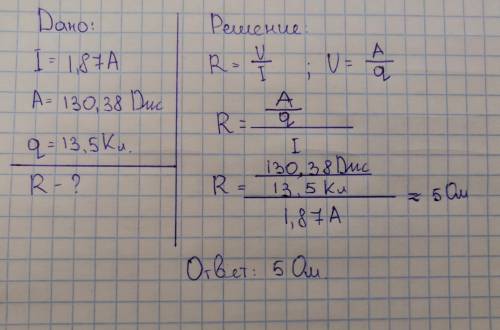 Дано:
I = 1,87А
А = 130,38 Дж
q = 13,5 Кл.
R - ?
Решение:
R = U/I ; U = A/q
R = (A/q)/I
R = (130,38 Дж/13,5 Кл)/1,87А ≈ 5 Ом
Ответ: 5 Ом.